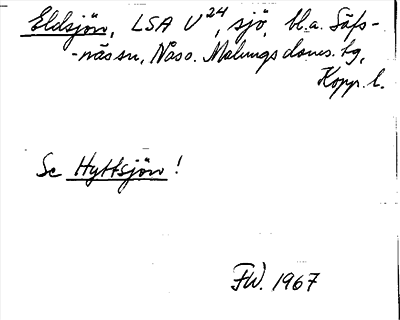 Eldsjön, LSA V²⁴, sjö, bl.a. Säfs-
-näs sn, Nås o. Malungs doms. tg,
Kopp. l.
Se Hyttsjön!
FW. 1967